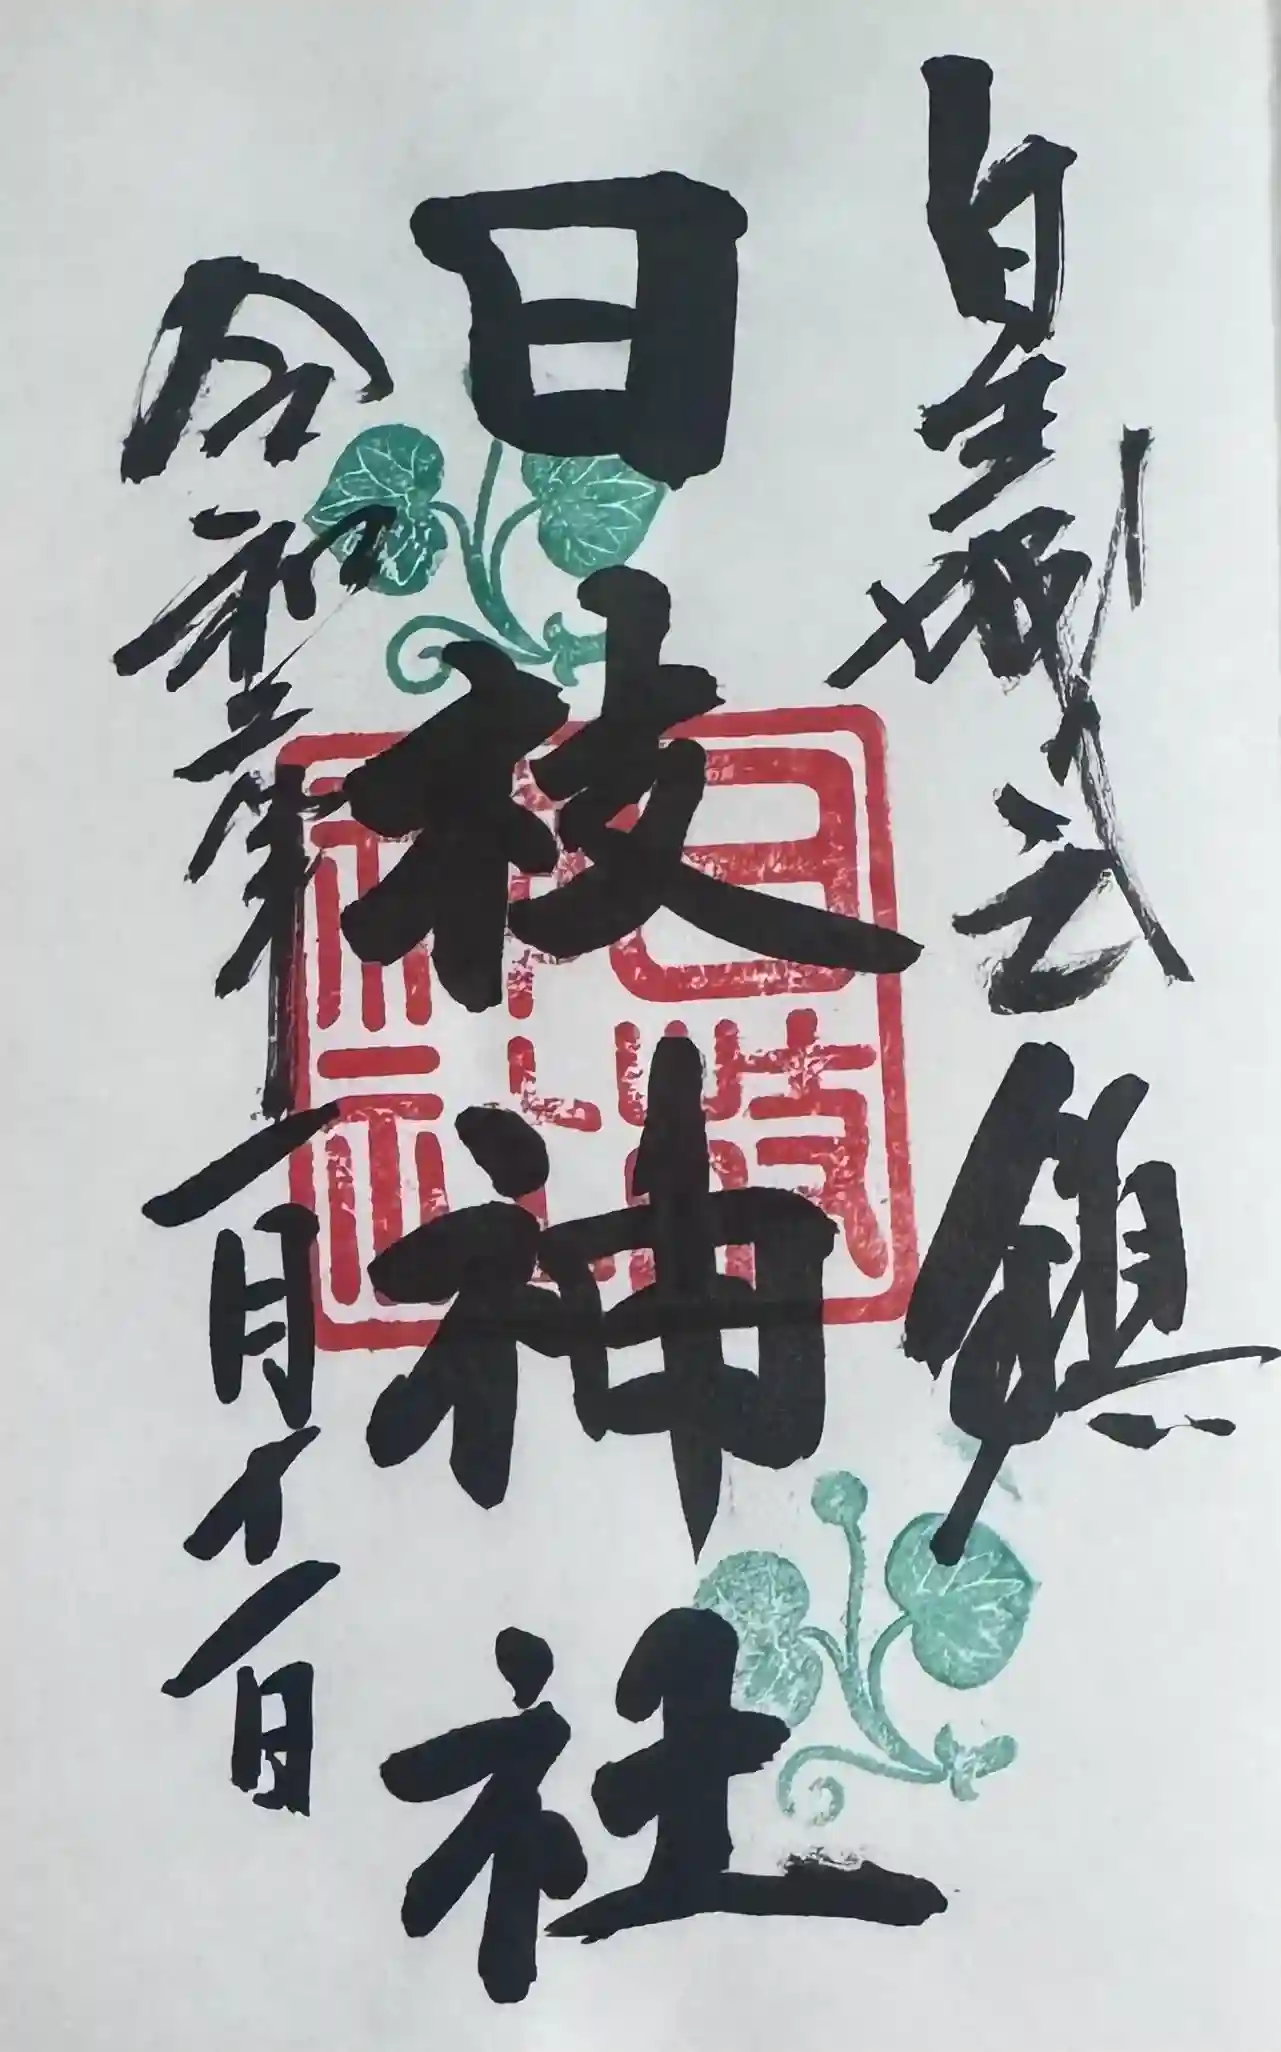 皇城之鎮
日枝神社
令和二年一月十一日
日枝神社